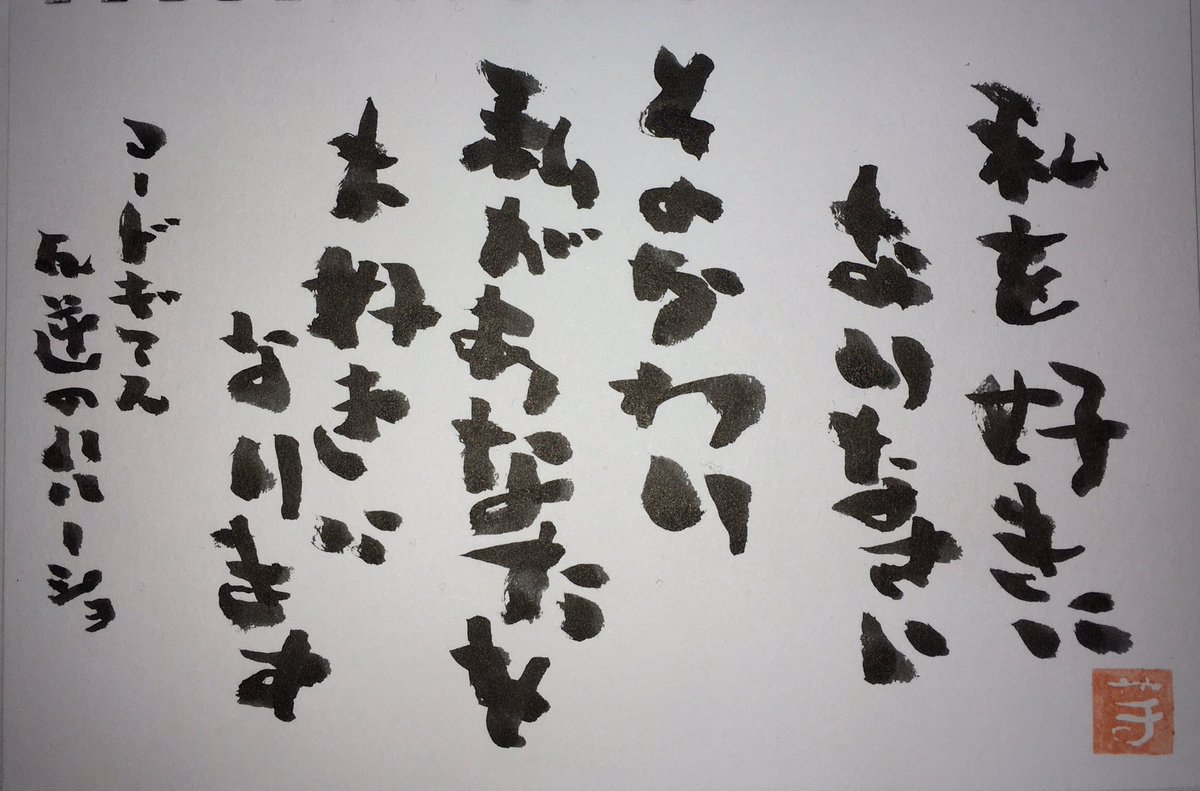 私を好きに
なりなさい
そのかわり
私があなたを
大好きに
なります
コードギアス
反逆のルルーシュ